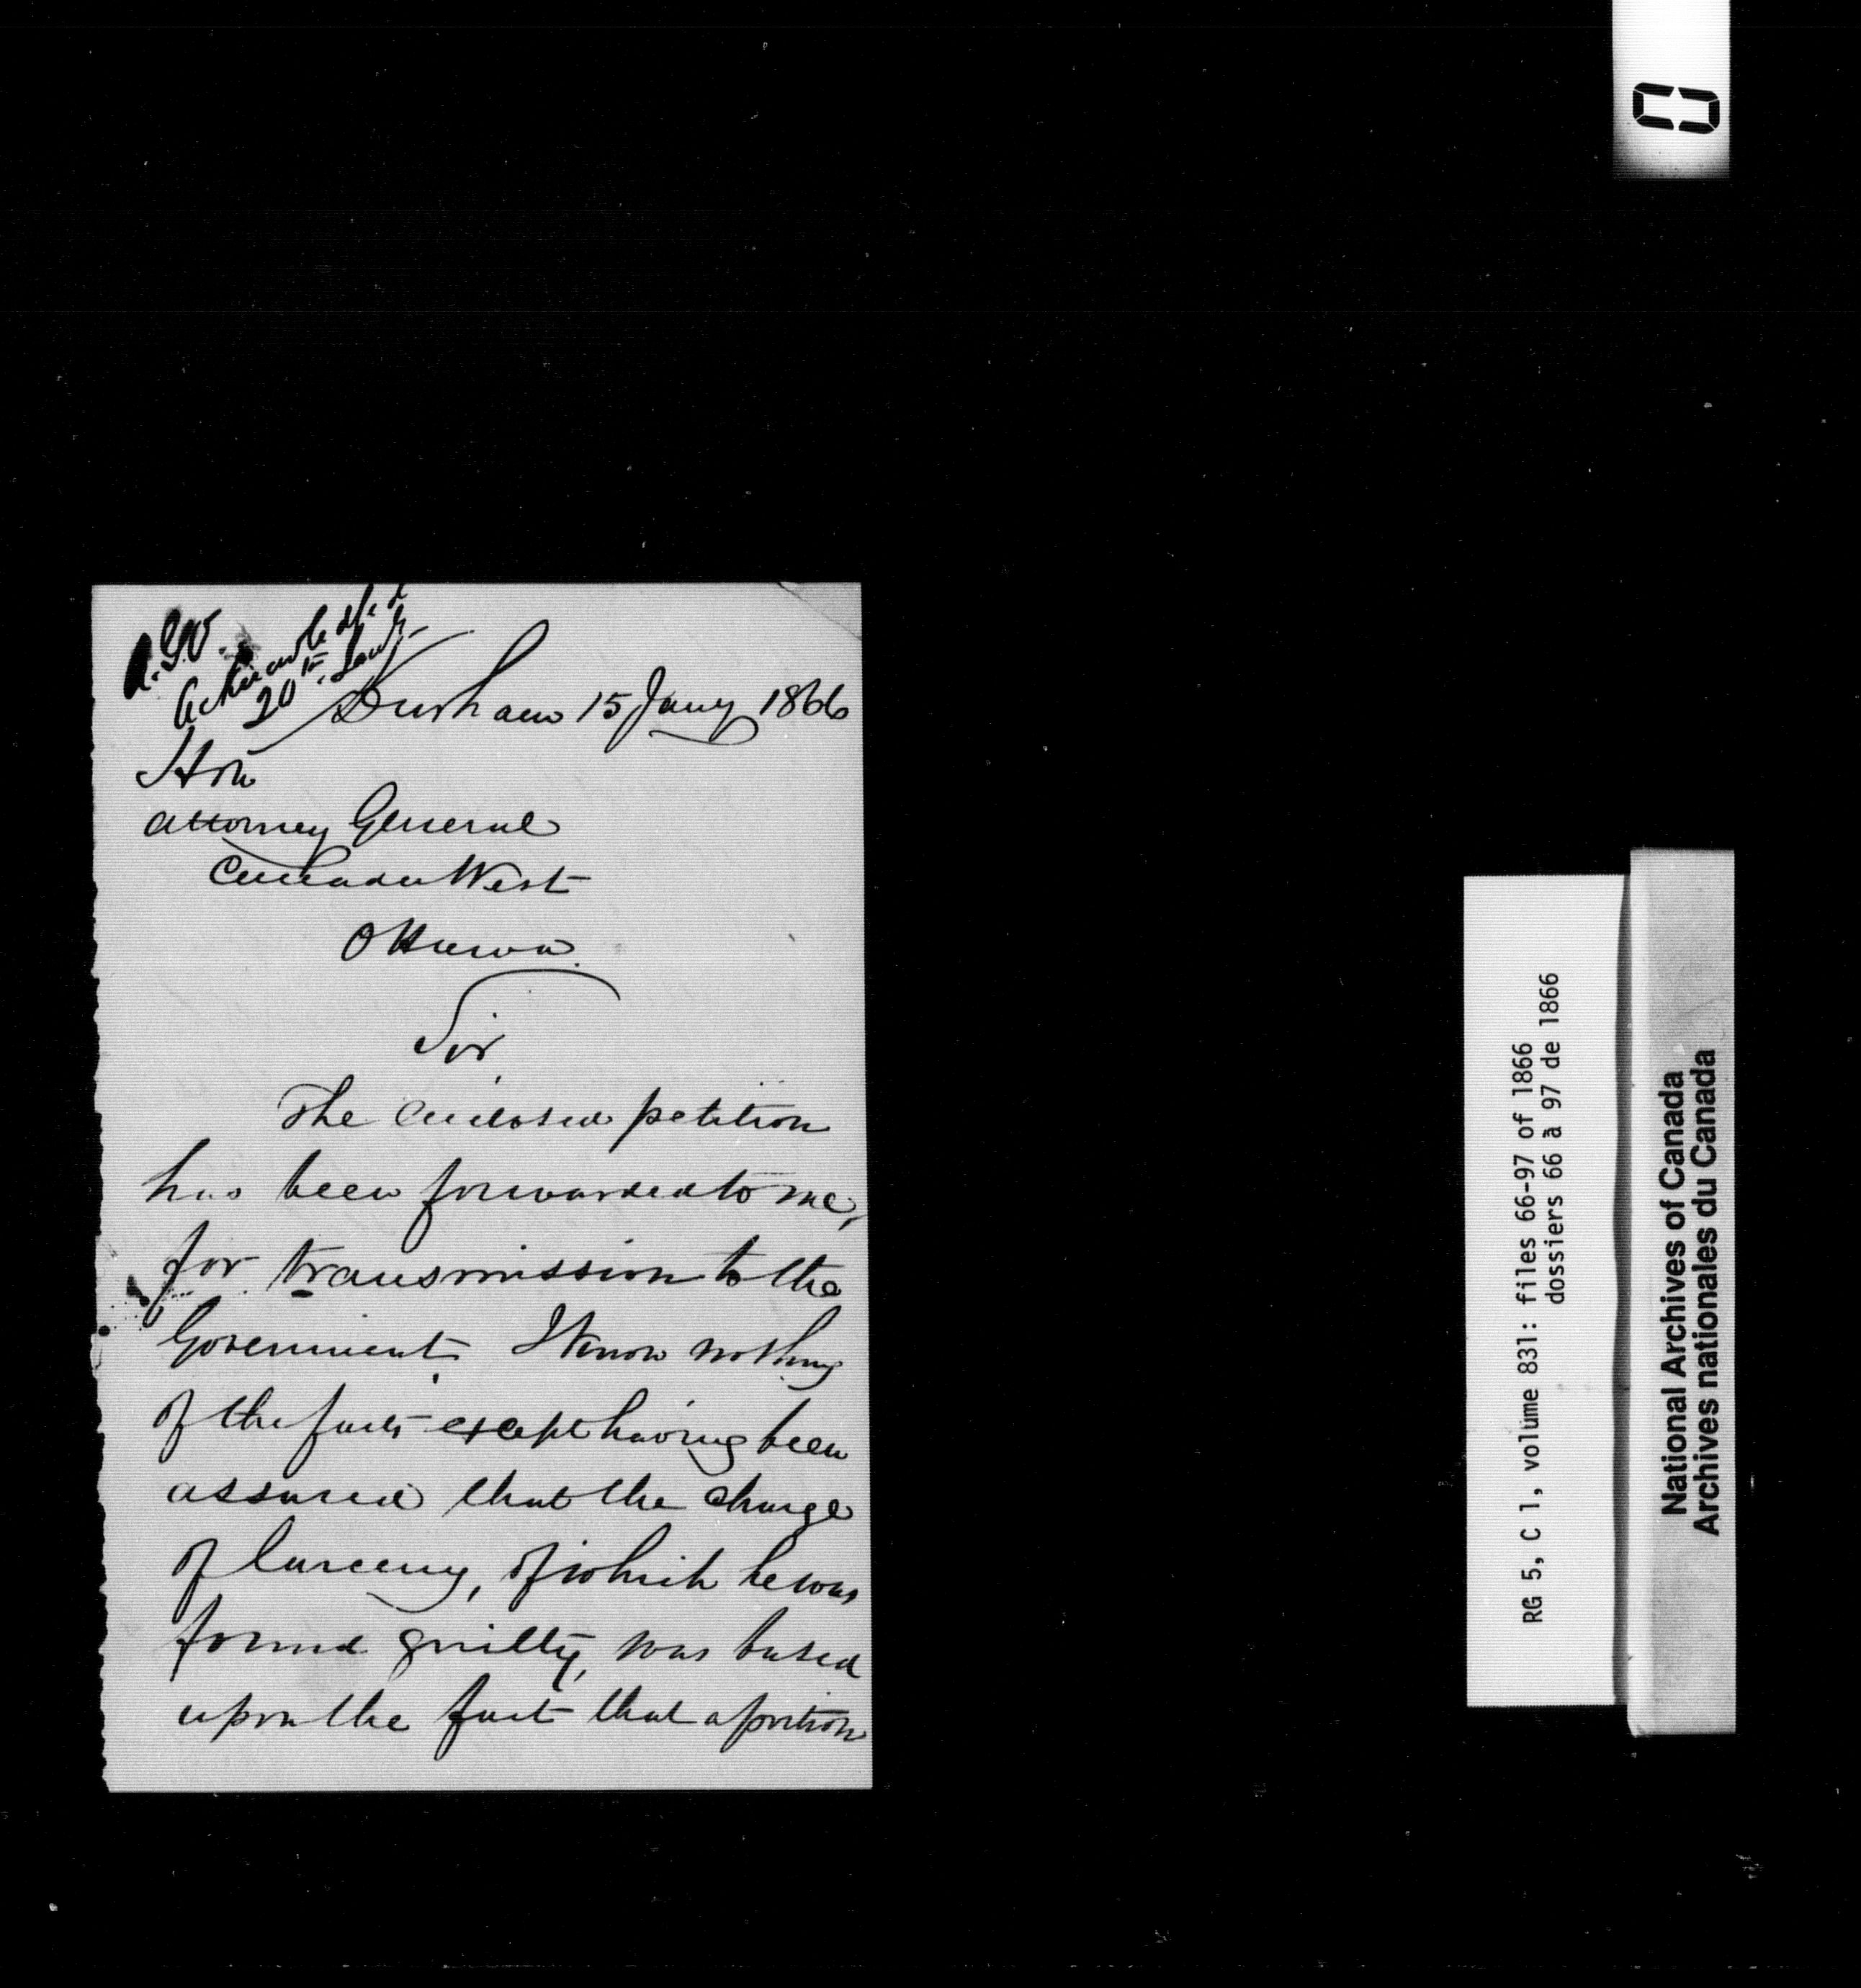 A.G.W.
Acknowledged
20th Jany
Durham 15 Jany 1866
Hon
Attorney General
Canada West
Ottawa.
Sir
The enclosed petition
has been forwarded to me,
for transmission to the
Government. I know nothing
of the facts except having been
assured that the charge
of larceny, of which he was
found guilty, was based
upon the fact that a portion
RG 5, C 1, volume 831: files 66-97 of 1866
dossiers 66 à 97 de 1866
National Archives of Canada
Archives nationales du Canada